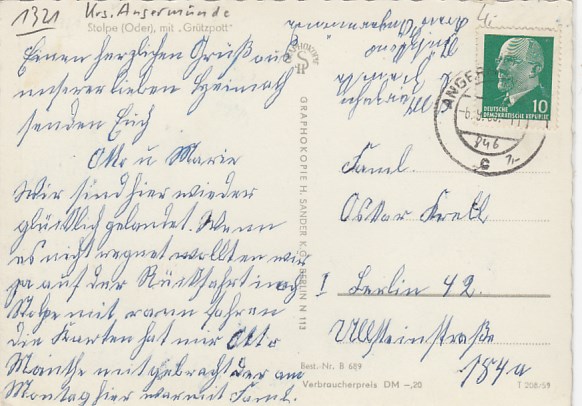 1321 Krs. Angermünde
Stolpe (Oder), mit „Grützpott"
Einen herzlichen Gruß aus
unserer lieben Heimath
senden Euch
Otto u Marie
Wir sind hier wieder
glücklich gelandet. Wenn
es nicht regnet wollten wir
ja auf der Rückfahrt nach
Stolpe mit, ran fahren
die Karten hat mir Otto
Manthe mitgebracht der am
Montag hier war mit Faml.
Angermünde
GRAPHOKOPIE H. SANDER K.G. BERLIN N 113
ANGER
846
c
10
DEUTSCHE
DEMOKRATISCHE REPUBLIK
Faml.
Oskar Krell
1 Berlin 42.
Ullsteinstraße
184a
Best.-Nr. B 689
Verbraucherpreis DM -,20
T 208/59